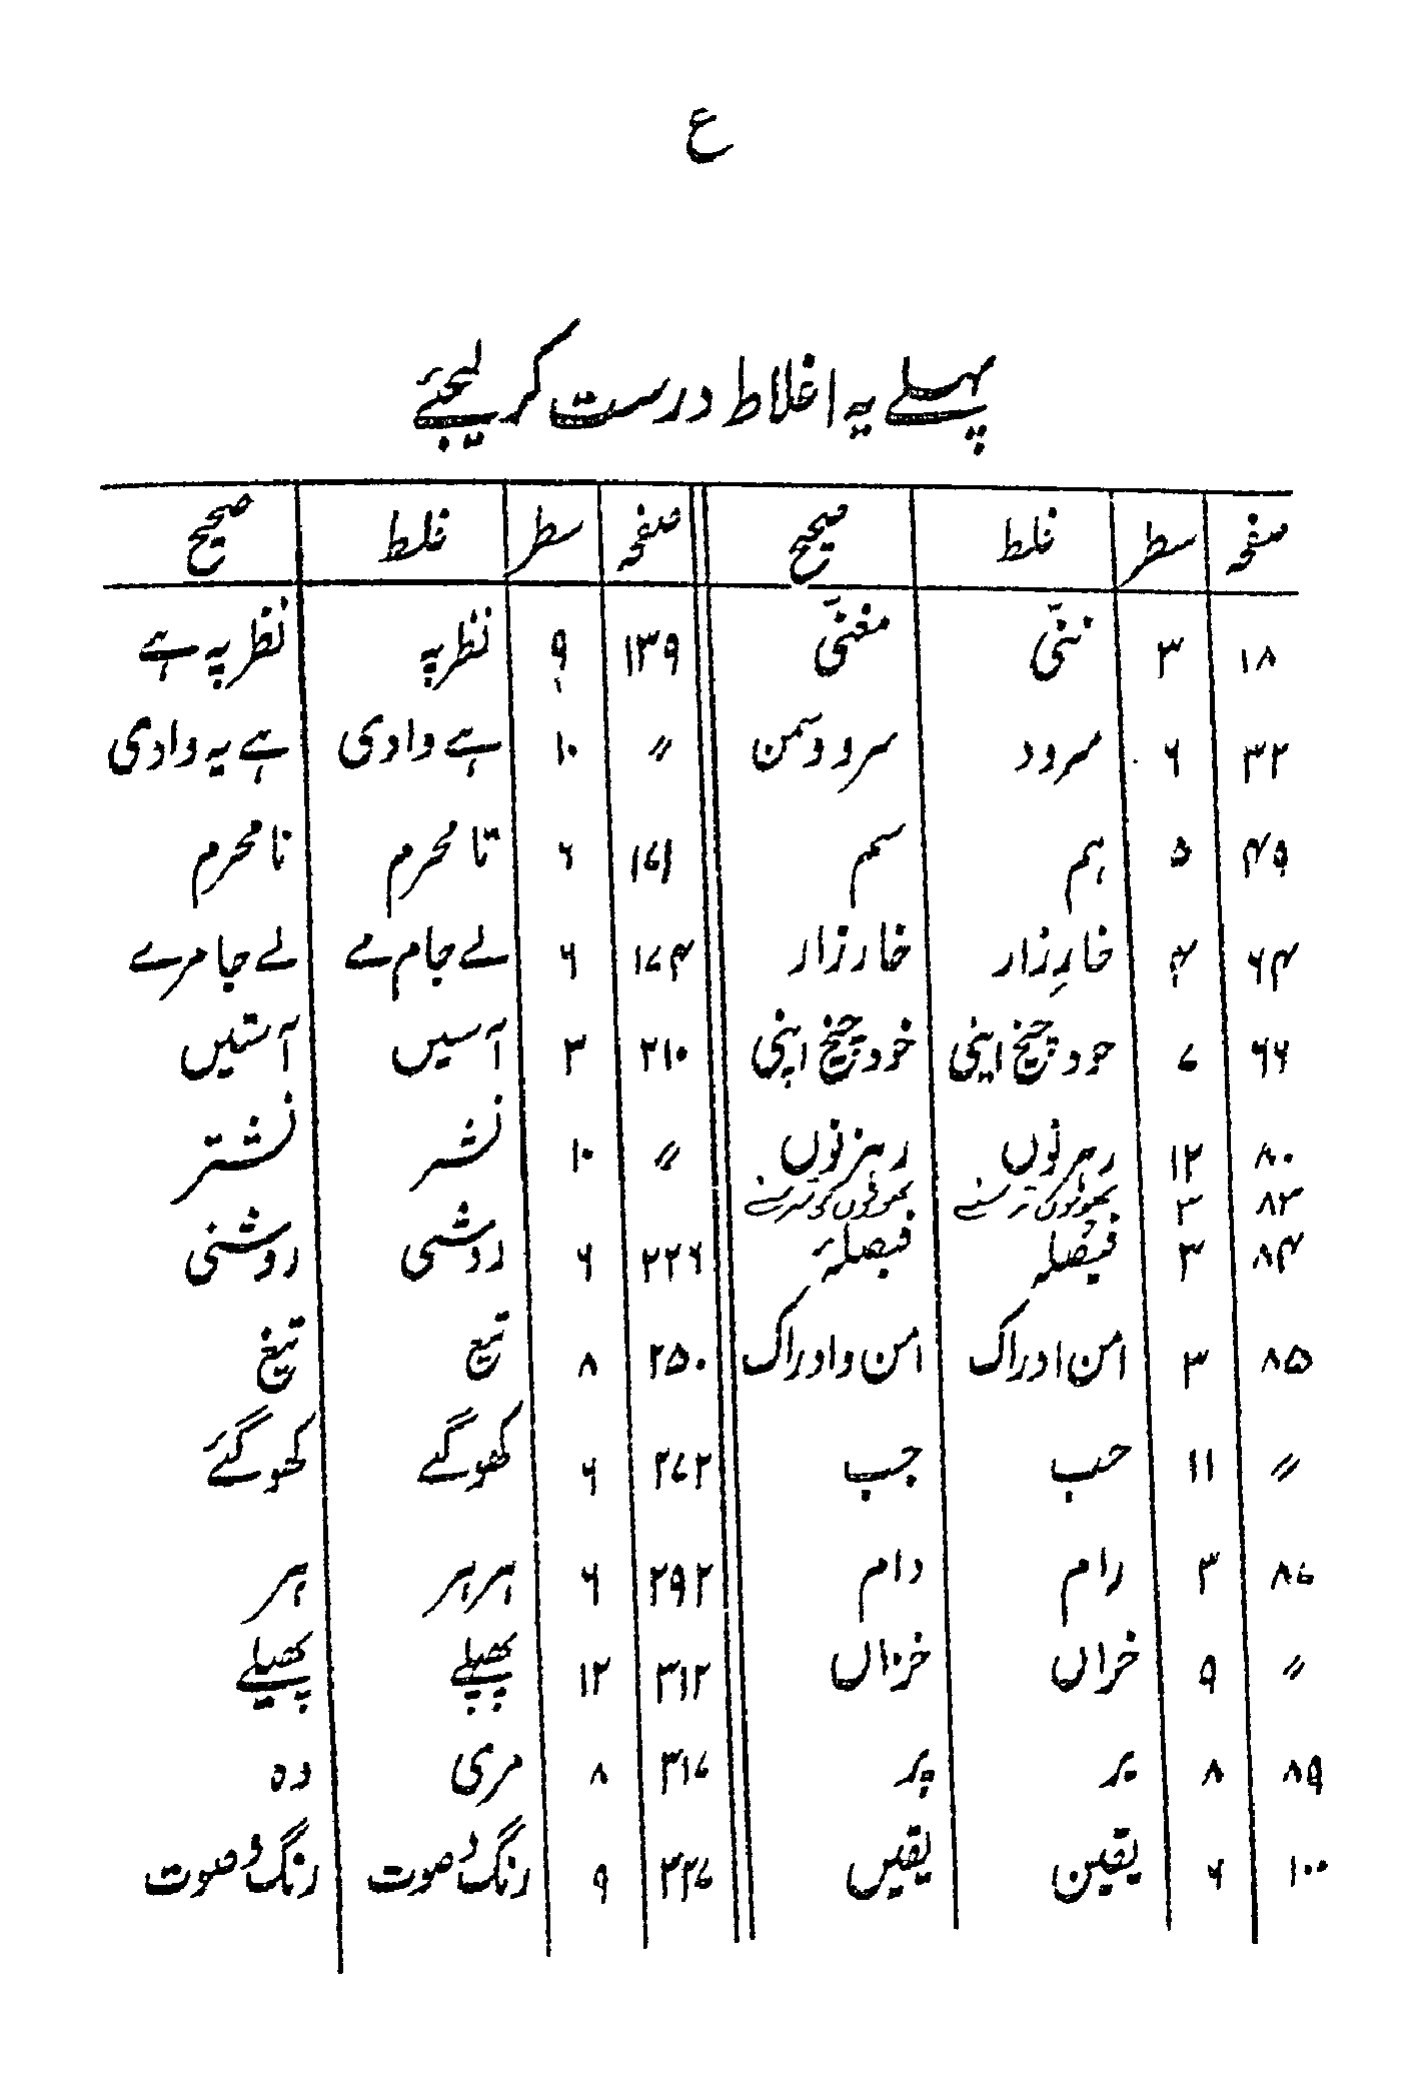 ع
پہلے یہ اغلاط درست کر لیجئے
صفحہ سطر غلط صحیح صفحہ سطر غلط صحیح
۱۸ ۳ مغنّی ۱۳۹ ۹ نظر پہ نظر پہ ہے
۳۲ ۶ سرود سرو و سمن 〃 ۱۰ ہے وادی ہے یہ وادی
۴۹ ۵ ہم سم ۱۷۱ ۶ تا محرم نا محرم
۶۴ ۴ خارِ زار خار زار ۱۷۴ ۶ لے جام مے لے جا مرے
۶۶ ۷ حود چیخ اپنی خود چیخ اپنی ۲۱۰ ۳ آسیں آستیں
۸۰ ۱۲ رہرنوں رہزنوں 〃 ۱۰ نشر نشتر
۸۳ ۳
۸۴ ۳ فیصلہ فیصلۂ ۲۲۶ ۶ روشی روشنی
۸۵ ۳ امن ادراک امن و ادراک ۲۵۰ ۸ تیع تیغ
〃 ۱۱ حب جب ۲۷۲ ۶ کھوگے کھوگئے
۸۷ ۳ رام دام ۲۹۲ ۶ ہر ہر ہر
〃 ۹ خراں خزاں ۳۱۲ ۱۲ پھپلے پھیلے
۸۹ ۸ پر ۳۱۷ ۸ مری وہ
۱۰۰ ۶ یقین یقیں ۳۳۷ ۹ رنگ و صوت رنگ و صوت